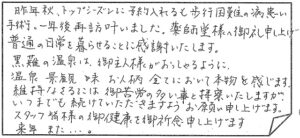 昨年秋、トップシーズンに予約入れるも歩行困難の病患い
手術。一年後再訪叶いました。薬師堂様へ御礼申し上げ
普通の日常を暮らせることに感謝いたします。
黒薙の温泉は、御主人様がおっしゃるように、
温泉 景観 味 お人柄 全てにおいて本物を感じます。
維持なさるには御苦労の多い事と拝察いたしますが
いつまでも続けていただきますようお願い申し上げます。
スタッフ皆様の御健康を御祈念申し上げます
来年 また…。